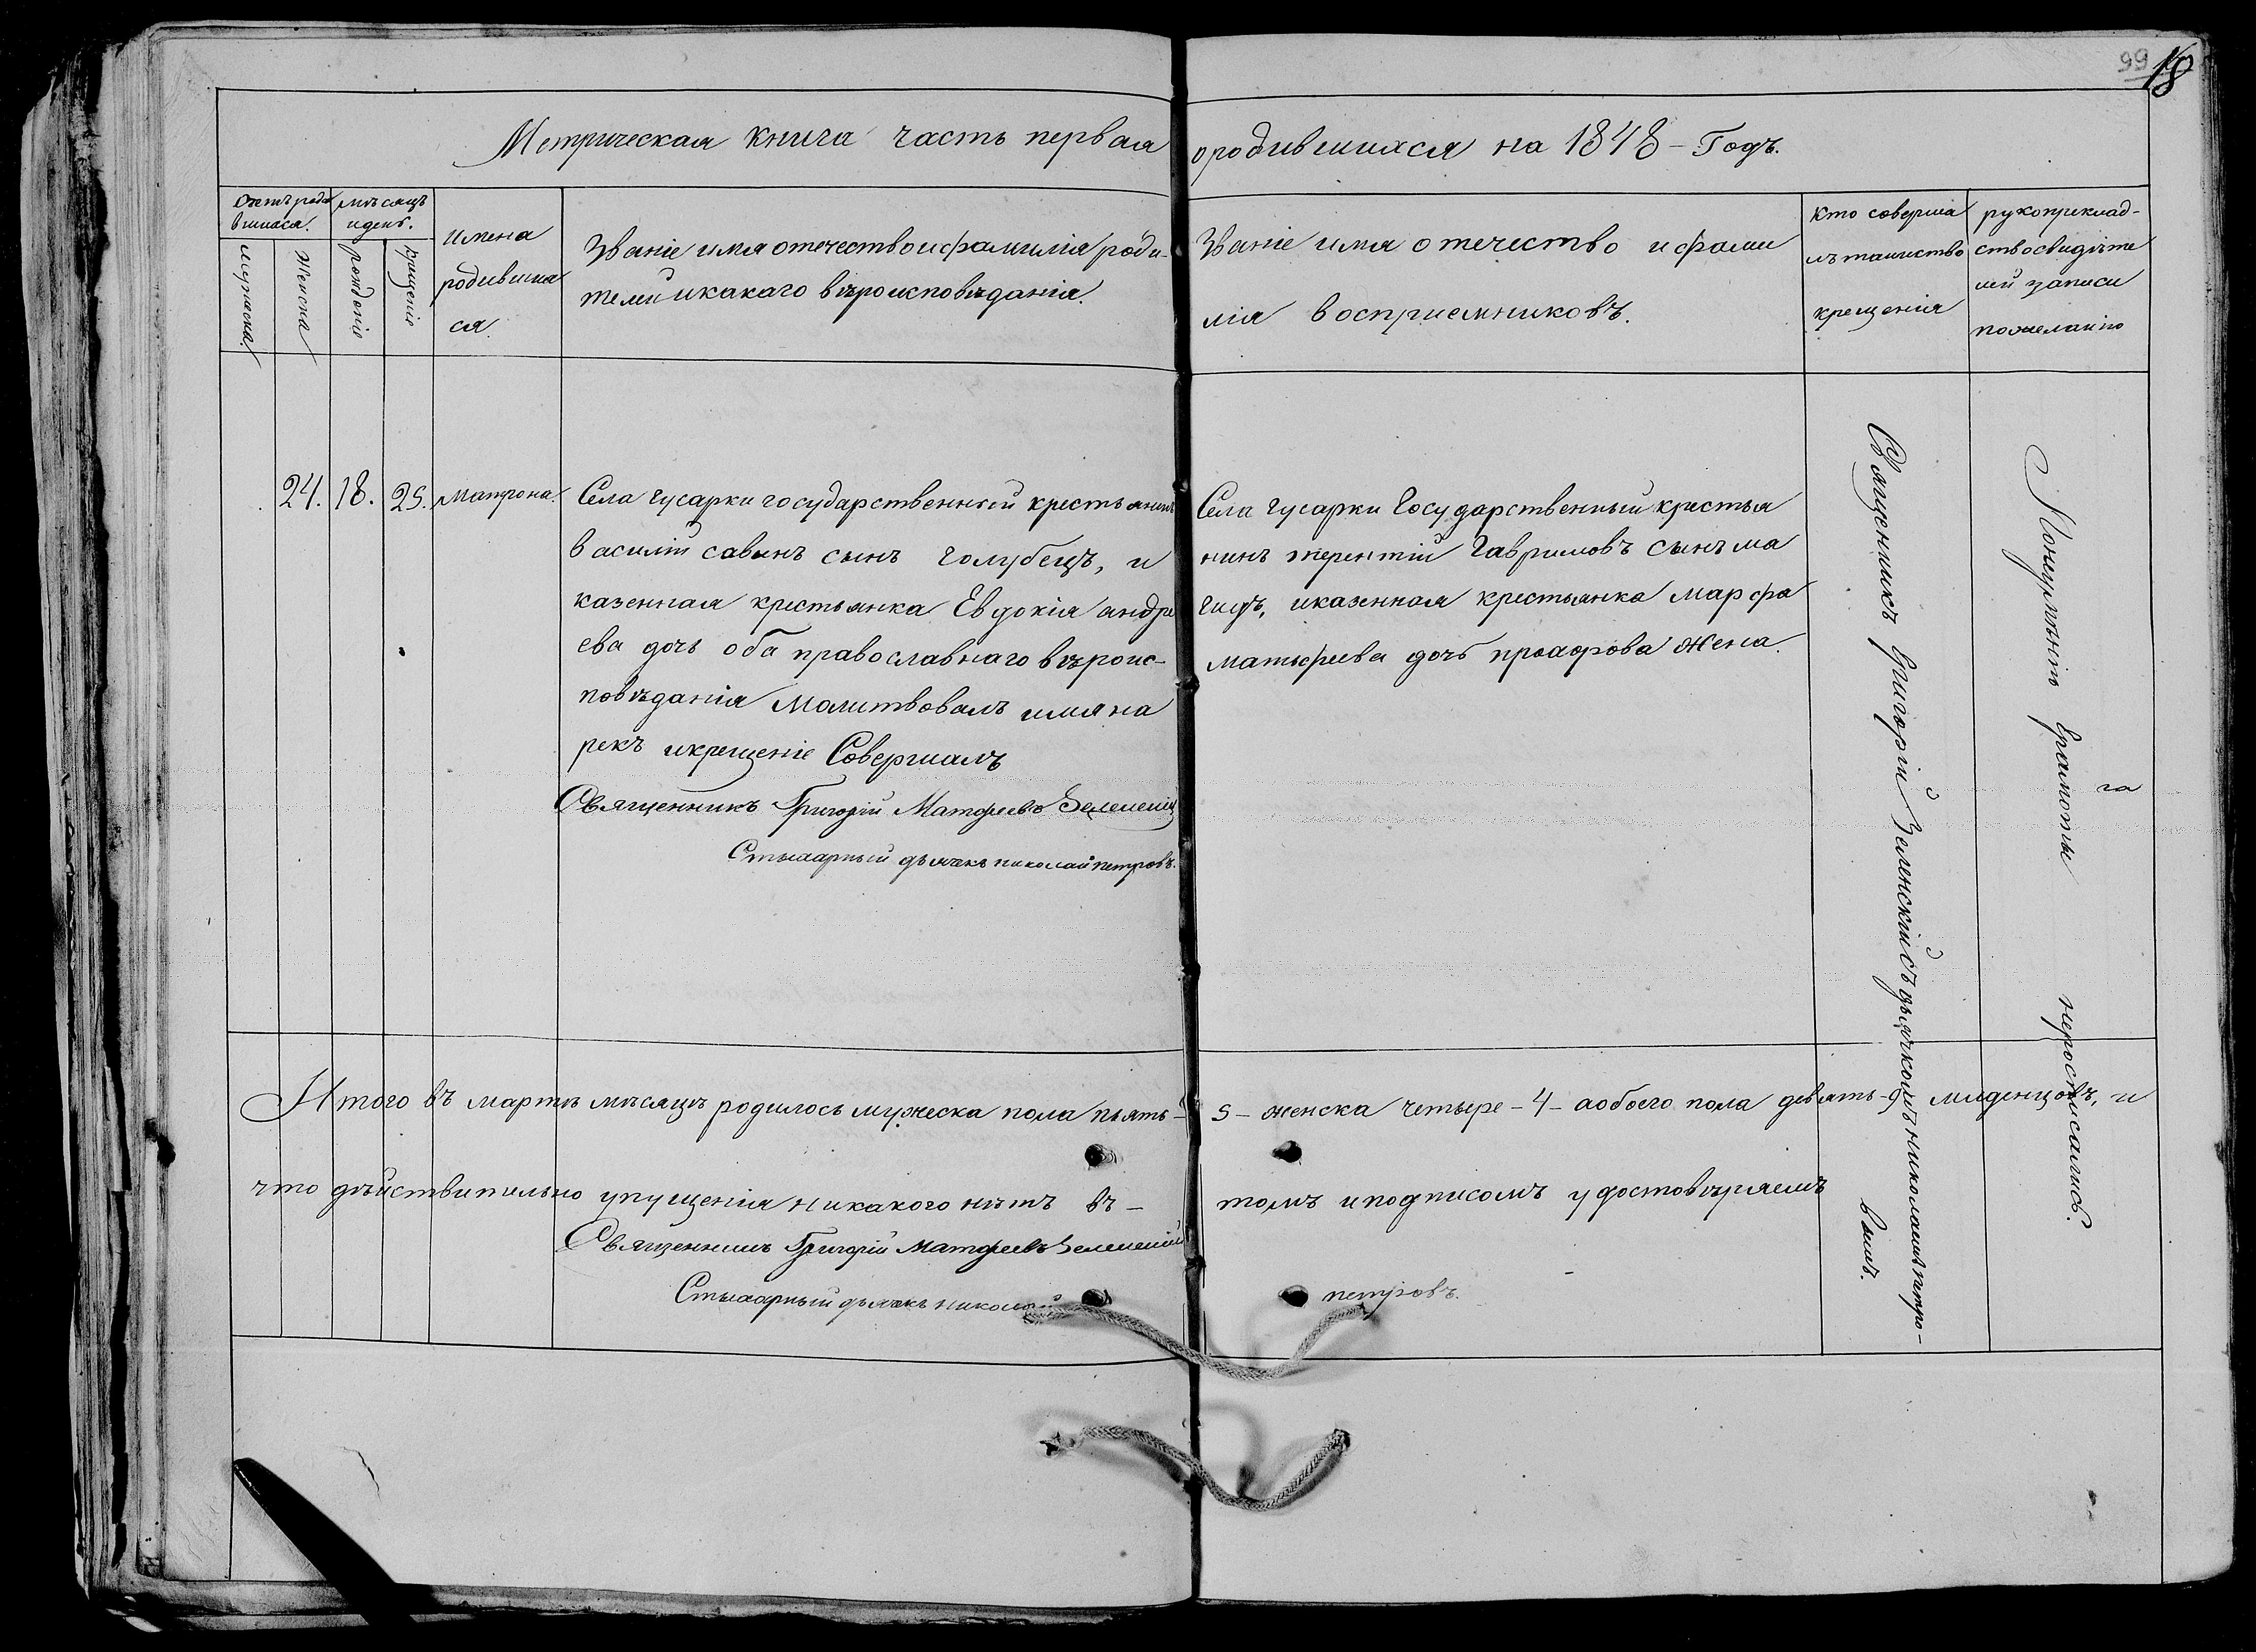 99 18
Метрическая книга часть первая ородившихся на 1848 - Годъ.
Счетъ роди
вшихся.
мѣсяцъ
иденъ.
мужеска
Женска
рожденіе
крещеніе
Имена
родивши
ся.
Званіе имя отечество и фамилія роди-
телей икакаго вѣроисповѣданія.
Званіе имя отечество и фами
лія восприемниковъ.
Кто соверша
лъ таинство
крещенія
рукоприклад-
ство свидѣте
лей записи
пожеланію
24. 18. 25. Матрона.
Села гусарки государственный крестьянинъ
василій савинъ сынъ голубецъ, и
казенная крестьянка Евдокія андре
ева дочь оба православнаго вѣроис-
повѣданія Молитвовалъ имя на
рекъ икрещеніе Совершалъ
Священникъ Григорій Матфеевъ Зеленскій
Стихарный дьячекъ николай петровъ.
Села гусарки Государственный крестья
нинъ терентій Гавриловъ сынъ ма
гидъ, иказенная крестьянка марфа
матыфеева дочь Жена.
Священникъ Григорій Зеленскій съ дьячкомъ Николаемъ петро-
вымъ.
Понеумѣнію Грамоты неросписались.
Итого въ мартѣ мѣсяцѣ родилось мужеска пола пять - 5 - женска четыре - 4 - аобоего пола девять - 9 младенцовъ, и
что дѣйствительно упущенія никакого нѣтъ въ - томъ иподписомъ удостовѣряемъ
Священникъ Григорій Матфеевъ Зеленскій
Стихарный дьячекъ николай петровъ.